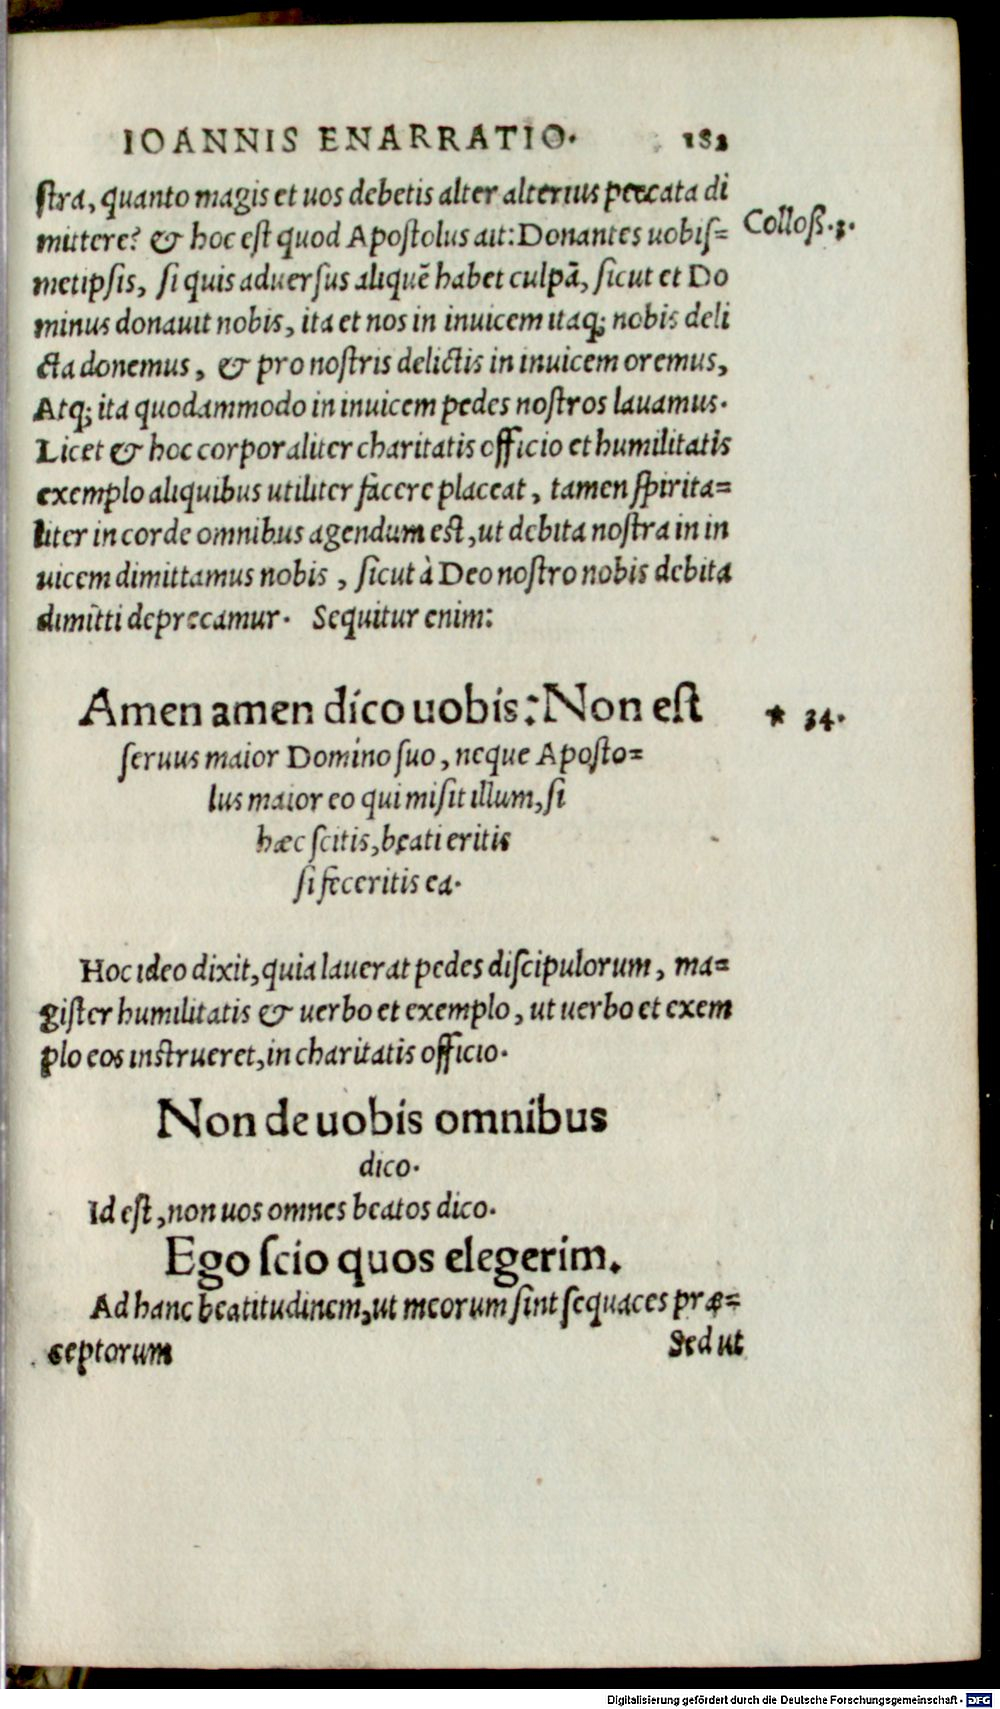 IOANNIS ENARRATIO. 182
stra, quanto magis et uos debetis alter alterius peccata di
mittere? & hoc est quod Apostolus ait: Donantes uobis= Colloß.3.
metipsis, si quis aduersus aliquē habet culpā, sicut et Do
minus donauit nobis, ita et nos in inuicem itaq; nobis deli
cta donemus, & pro nostris delictis in inuicem oremus,
Atq; ita quodammodo in inuicem pedes nostros lauamus.
Licet & hoc corporaliter charitatis officio et humilitatis
exemplo aliquibus utiliter facere placeat, tamen spirita=
liter in corde omnibus agendum est, ut debita nostra in in
uicem dimittamus nobis, sicut à Deo nostro nobis debita
dimitti deprecamur. Sequitur enim:
Amen amen dico uobis: Non est * 34.
seruus maior Domino suo, neque Aposto=
lus maior eo qui misit illum, si
hæc scitis, beati eritis
si feceritis ea.
Hoc ideo dixit, quia lauerat pedes discipulorum, ma=
gister humilitatis & uerbo et exemplo, ut uerbo et exem
plo eos instrueret, in charitatis officio.
Non de uobis omnibus
dico.
Id est, non uos omnes beatos dico.
Ego scio quos elegerim.
Ad hanc beatitudinem, ut meorum sint sequaces præ=
ceptorum Sed ut
Digitalisierung gefördert durch die Deutsche Forschungsgemeinschaft - DFG